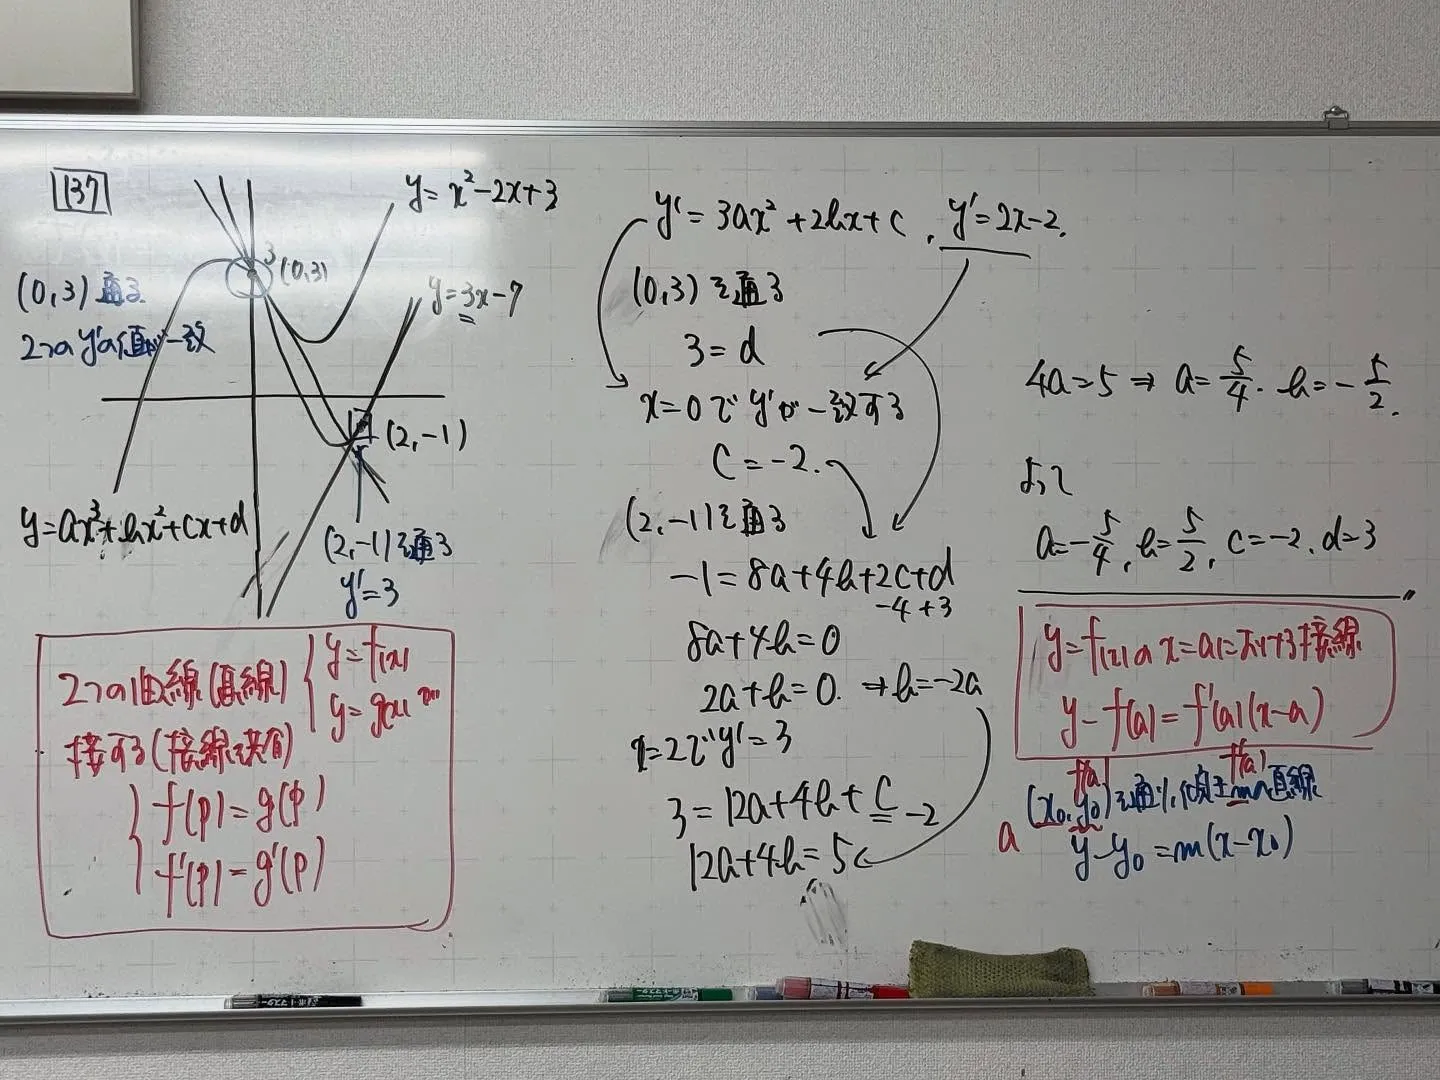 137
y=x²-2x+3
3 (0,3)
(0,3) 通る
2つのy'の値が一致
y=3x-7
(2,-1)
y=ax³+bx²+cx+d
(2,-1)を通る
y'=3
2つの曲線(直線) { y=f(x)
y=g(x)
接する(接線共有)
{ f(p)=g(p)
f'(p)=g'(p)
y'=3ax²+2bx+c, y'=2x-2.
(0,3)を通る
3=d
x=0でy'が一致する
c=-2.
(2,-1)を通る
-1=8a+4b+2c+d
-4+3
8a+4b=0
2a+b=0. ⇒ b=-2a
x=2でy'=3
3=12a+4b+c
-2
12a+4b=5
4a=5 ⇒ a=5/4. b=-5/2.
よって
a=-5/4, b=5/2, c=-2, d=3
y=f(x)のx=aにおける接線
y-f(a)=f'(a)(x-a)
f(a) f'(a)
(x₀,y₀)を通り、傾きmの直線
a y-y₀=m(x-x₀)